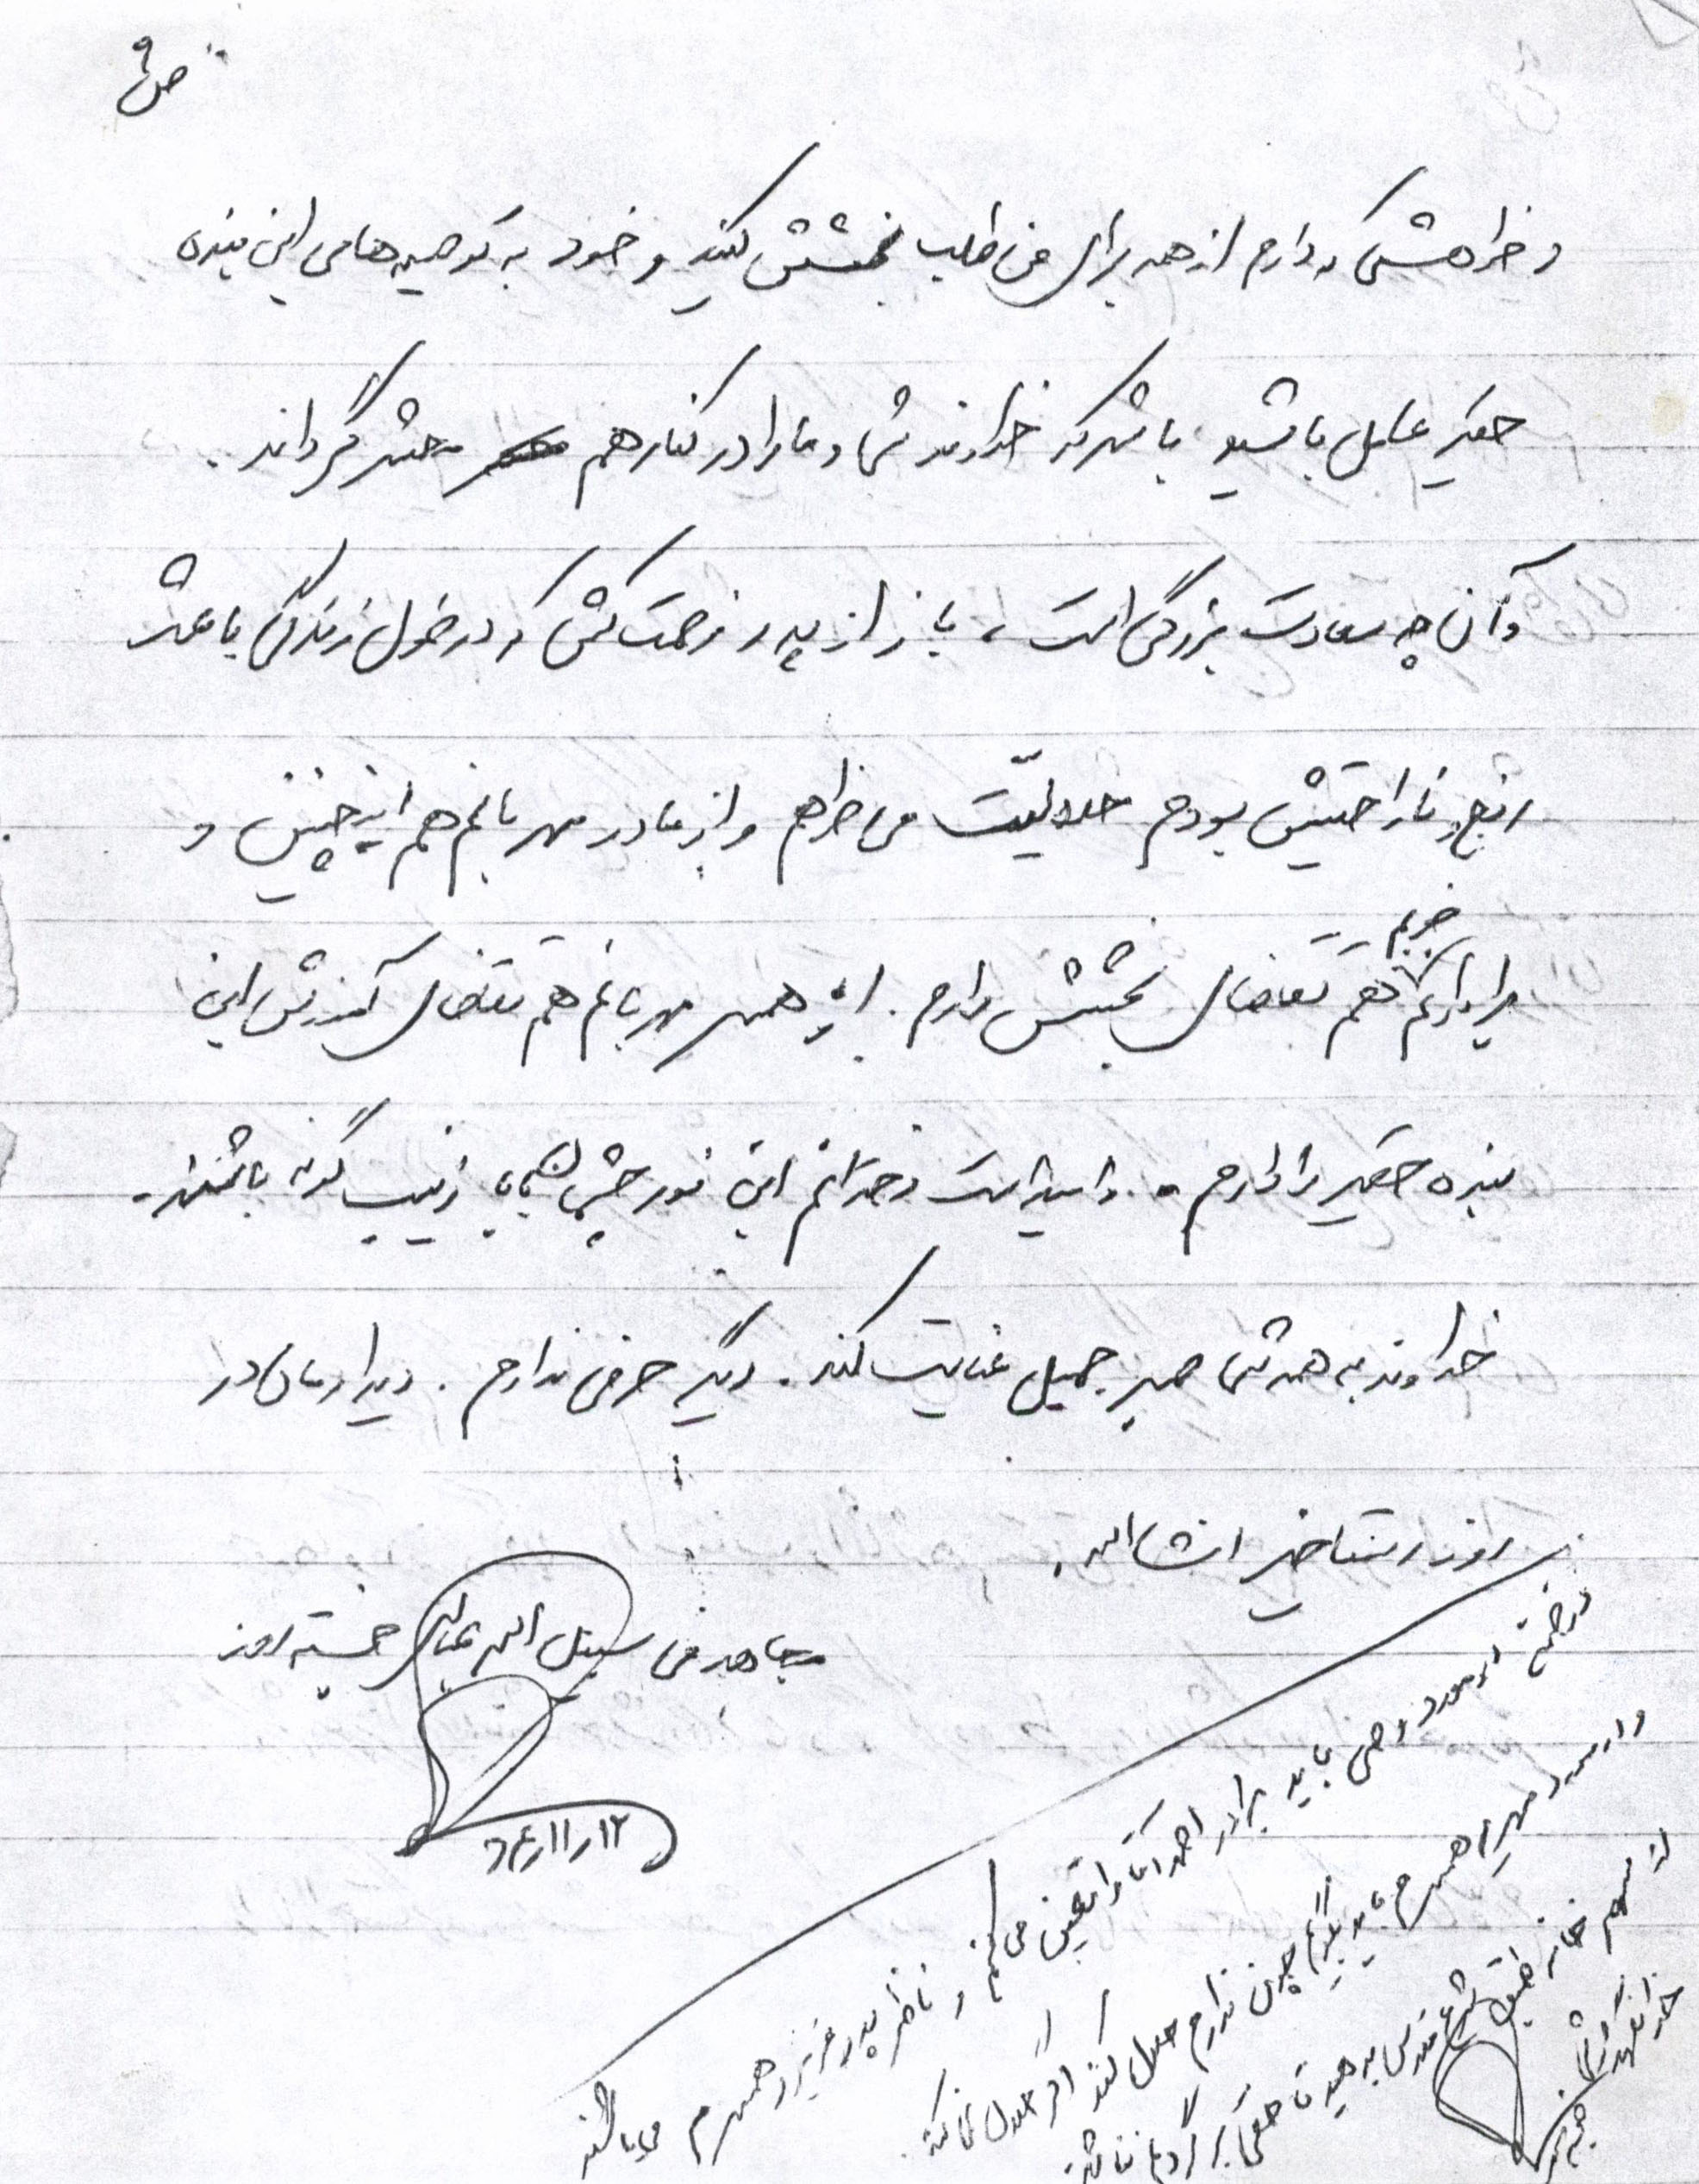 ص ۹
و خواهشی که دارم از همه برای من طلب بخشش کنید و خود به توصیه‌هامی این بنده
حقیر عامل باشید باشد که خداوند شما و ما را در کنار هم محشر گرداند.
و آن چه سعادت بزرگی است، باز از پدر زحمت کشی که در طول زندگی باعث
رنج و ناراحتیش بودم حلالیّت می خواهم و از مادر مهربانم هم این چنین و
خوبم
برادرانم هم تقاضای بخشش دارم. از همسر مهربانم هم تقاضای آمرزش این
بنده حقیر را دارم. و امید است دخترانم این نور چشمان بابا زینب گونه باشند.
خداوند به همه شما صبر جمیل عنایت کند. دیگر حرفی ندارم. دیدارمان در
روز رستاخیز انشاءالله.
مجاهد فی سبیل الله خجسته روز
۶۴/۱۱/۱۲
در ضمن در مورد وصی باید برادر احمد آقا را تعیین می کنم و ناظر پدر عزیز و همسرم می باشند
و در مورد مهریه همسرم باید بگویم چون ندارم حلال کند اگر حلال نمی کند.
از سهم خانه طبق شرع مقدس بدهید تا حقی بر گردنم نباشد
خدانگهدار شما